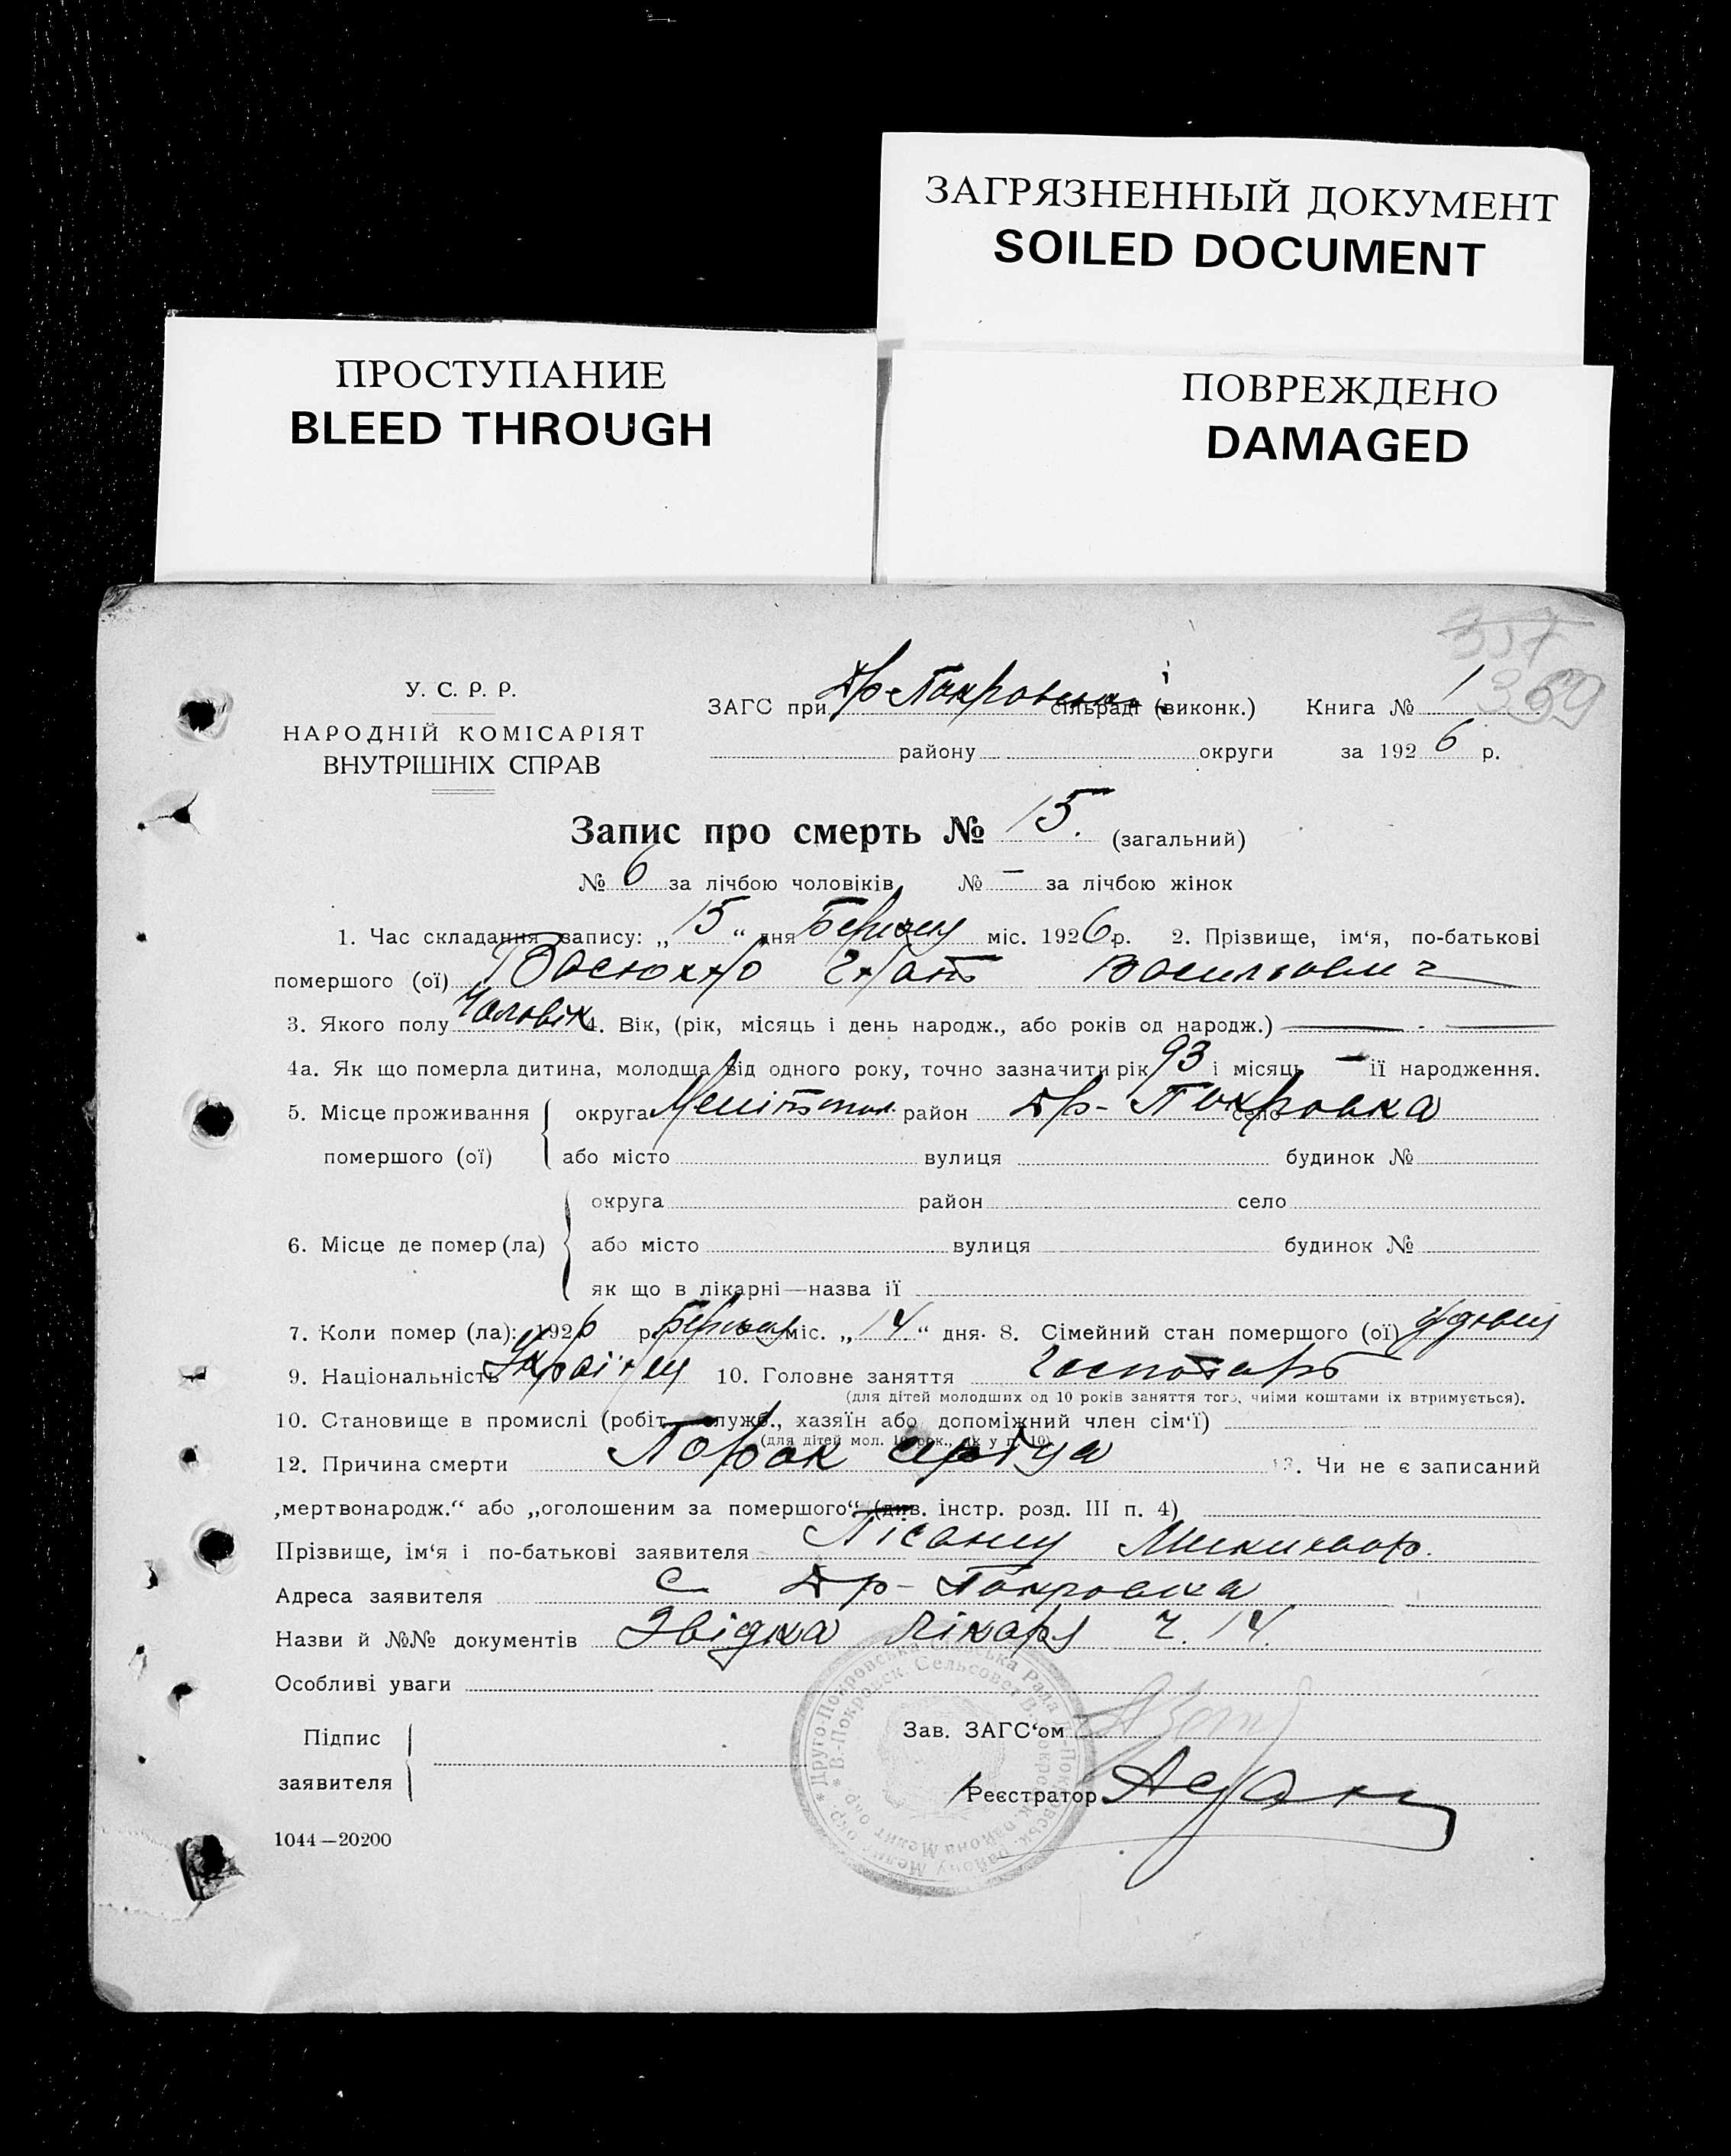 ЗАГРЯЗНЕННЫЙ ДОКУМЕНТ
SOILED DOCUMENT
ПРОСТУПАНИЕ
BLEED THROUGH
ПОВРЕЖДЕНО
DAMAGED
357
369
У. С. Р. Р.
НАРОДНІЙ КОМІСАРІЯТ
ВНУТРІШНІХ СПРАВ
ЗАГС при Др-Покровській сільраді (виконк.) Книга № 1
району округи за 1926 р.
Запис про смерть № 15. (загальний)
№ 6 за лічбою чоловіків № – за лічбою жінок
1. Час складання запису: „15“ дня Березня міс. 1926 р. 2. Прізвище, ім‘я, по-батькові
помершого (ої) Гнат Васильович
3. Якого полу Чоловік 4. Вік, (рік, місяць і день народж., або років од народж.) —
4а. Як що померла дитина, молодща від одного року, точно зазначити рік 93 і місяць – її народження.
5. Місце проживання помершого (ої) округа Мелітопол. район Др-Покровка село
або місто вулиця будинок №
6. Місце де помер (ла) округа район село
або місто вулиця будинок №
як що в лікарні—назва її
7. Коли помер (ла): 1926 р. Березня міс. „14“ дня. 8. Сімейний стан помершого (ої) удовец
9. Національність Українец 10. Головне заняття Господарь
(для дітей молодших од 10 років заняття того, чиїми коштами їх втримується).
10. Становище в промислі (робіт., служб., хазяїн або допоміжний член сім‘ї)
(для дітей мол. 10 рок., як у п. 10)
12. Причина смерти Порок серця 13. Чи не є записаний
„мертвонародж.“ або „оголошеним за помершого“ (див. інстр. розд. III п. 4)
Прізвище, ім‘я і по-батькові заявителя
Адреса заявителя с Др-Покровка
Назви й №№ документів Звідка лікаря ч. 14.
Особливі уваги
Підпис заявителя
Зав. ЗАГС‘ом
Реєстратор
1044—20200